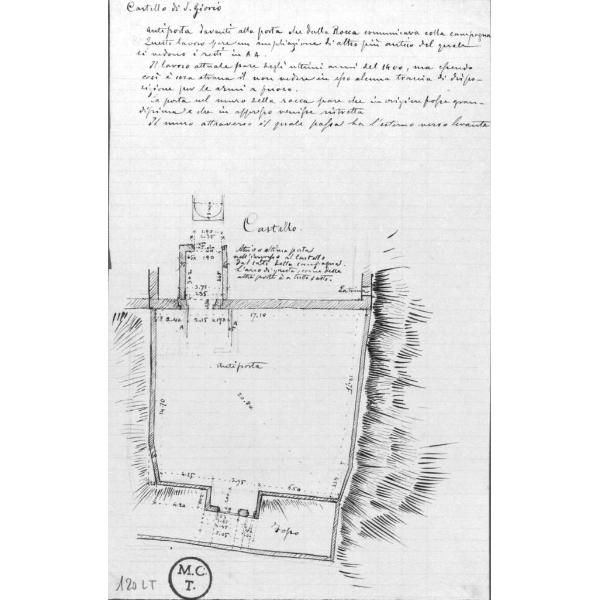 Castello di S. Giorio
Antiporta davanti alla porta che dalla Rocca comunicava colla campagna
Questo lavoro pare un ampliazione di altro più antico del quale
si vedono i resti in AA.
Il lavoro attuale pare degli ultimi anni del 1400, ma essendo
così è cosa strana il non vedere in esso alcuna traccia di dispo-
sizione per le armi a fuoco.
La porta nel muro della rocca pare che in origine fosse gran-
dissima e che in appresso venisse ristretta
Il muro attraverso il quale passa ha l'esterno verso levante
Castello.
Atrio o ultima porta
nell'ingresso al Castello
dal lato della campagna.
L'arco di questa, come delle
altre porte è a tutto sesto.
1.40
3.75
2.35
Latrina
2.15
A
A
17.10
Antiporta
20.80
14.70
4.25
2.75
6.50
4.20
Fosso
120 LT
M.C.
T.